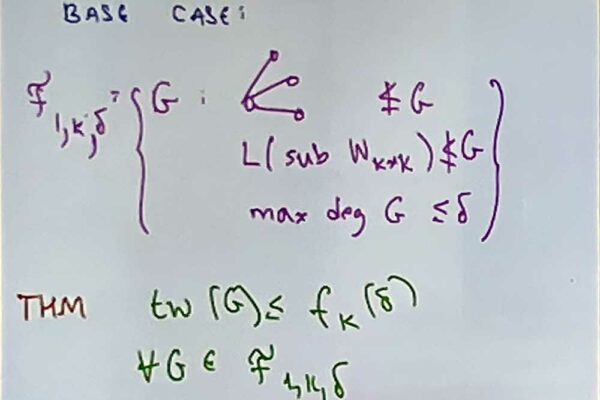 BASE CASE:
ℱ₁,ₖ,δ = { G : ⊄ G
L(sub W_{k×k}) ⊄ G
max deg G ≤ δ }
THM tw(G) ≤ f_k(δ)
∀ G ∈ ℱ₁,ₖ,δ